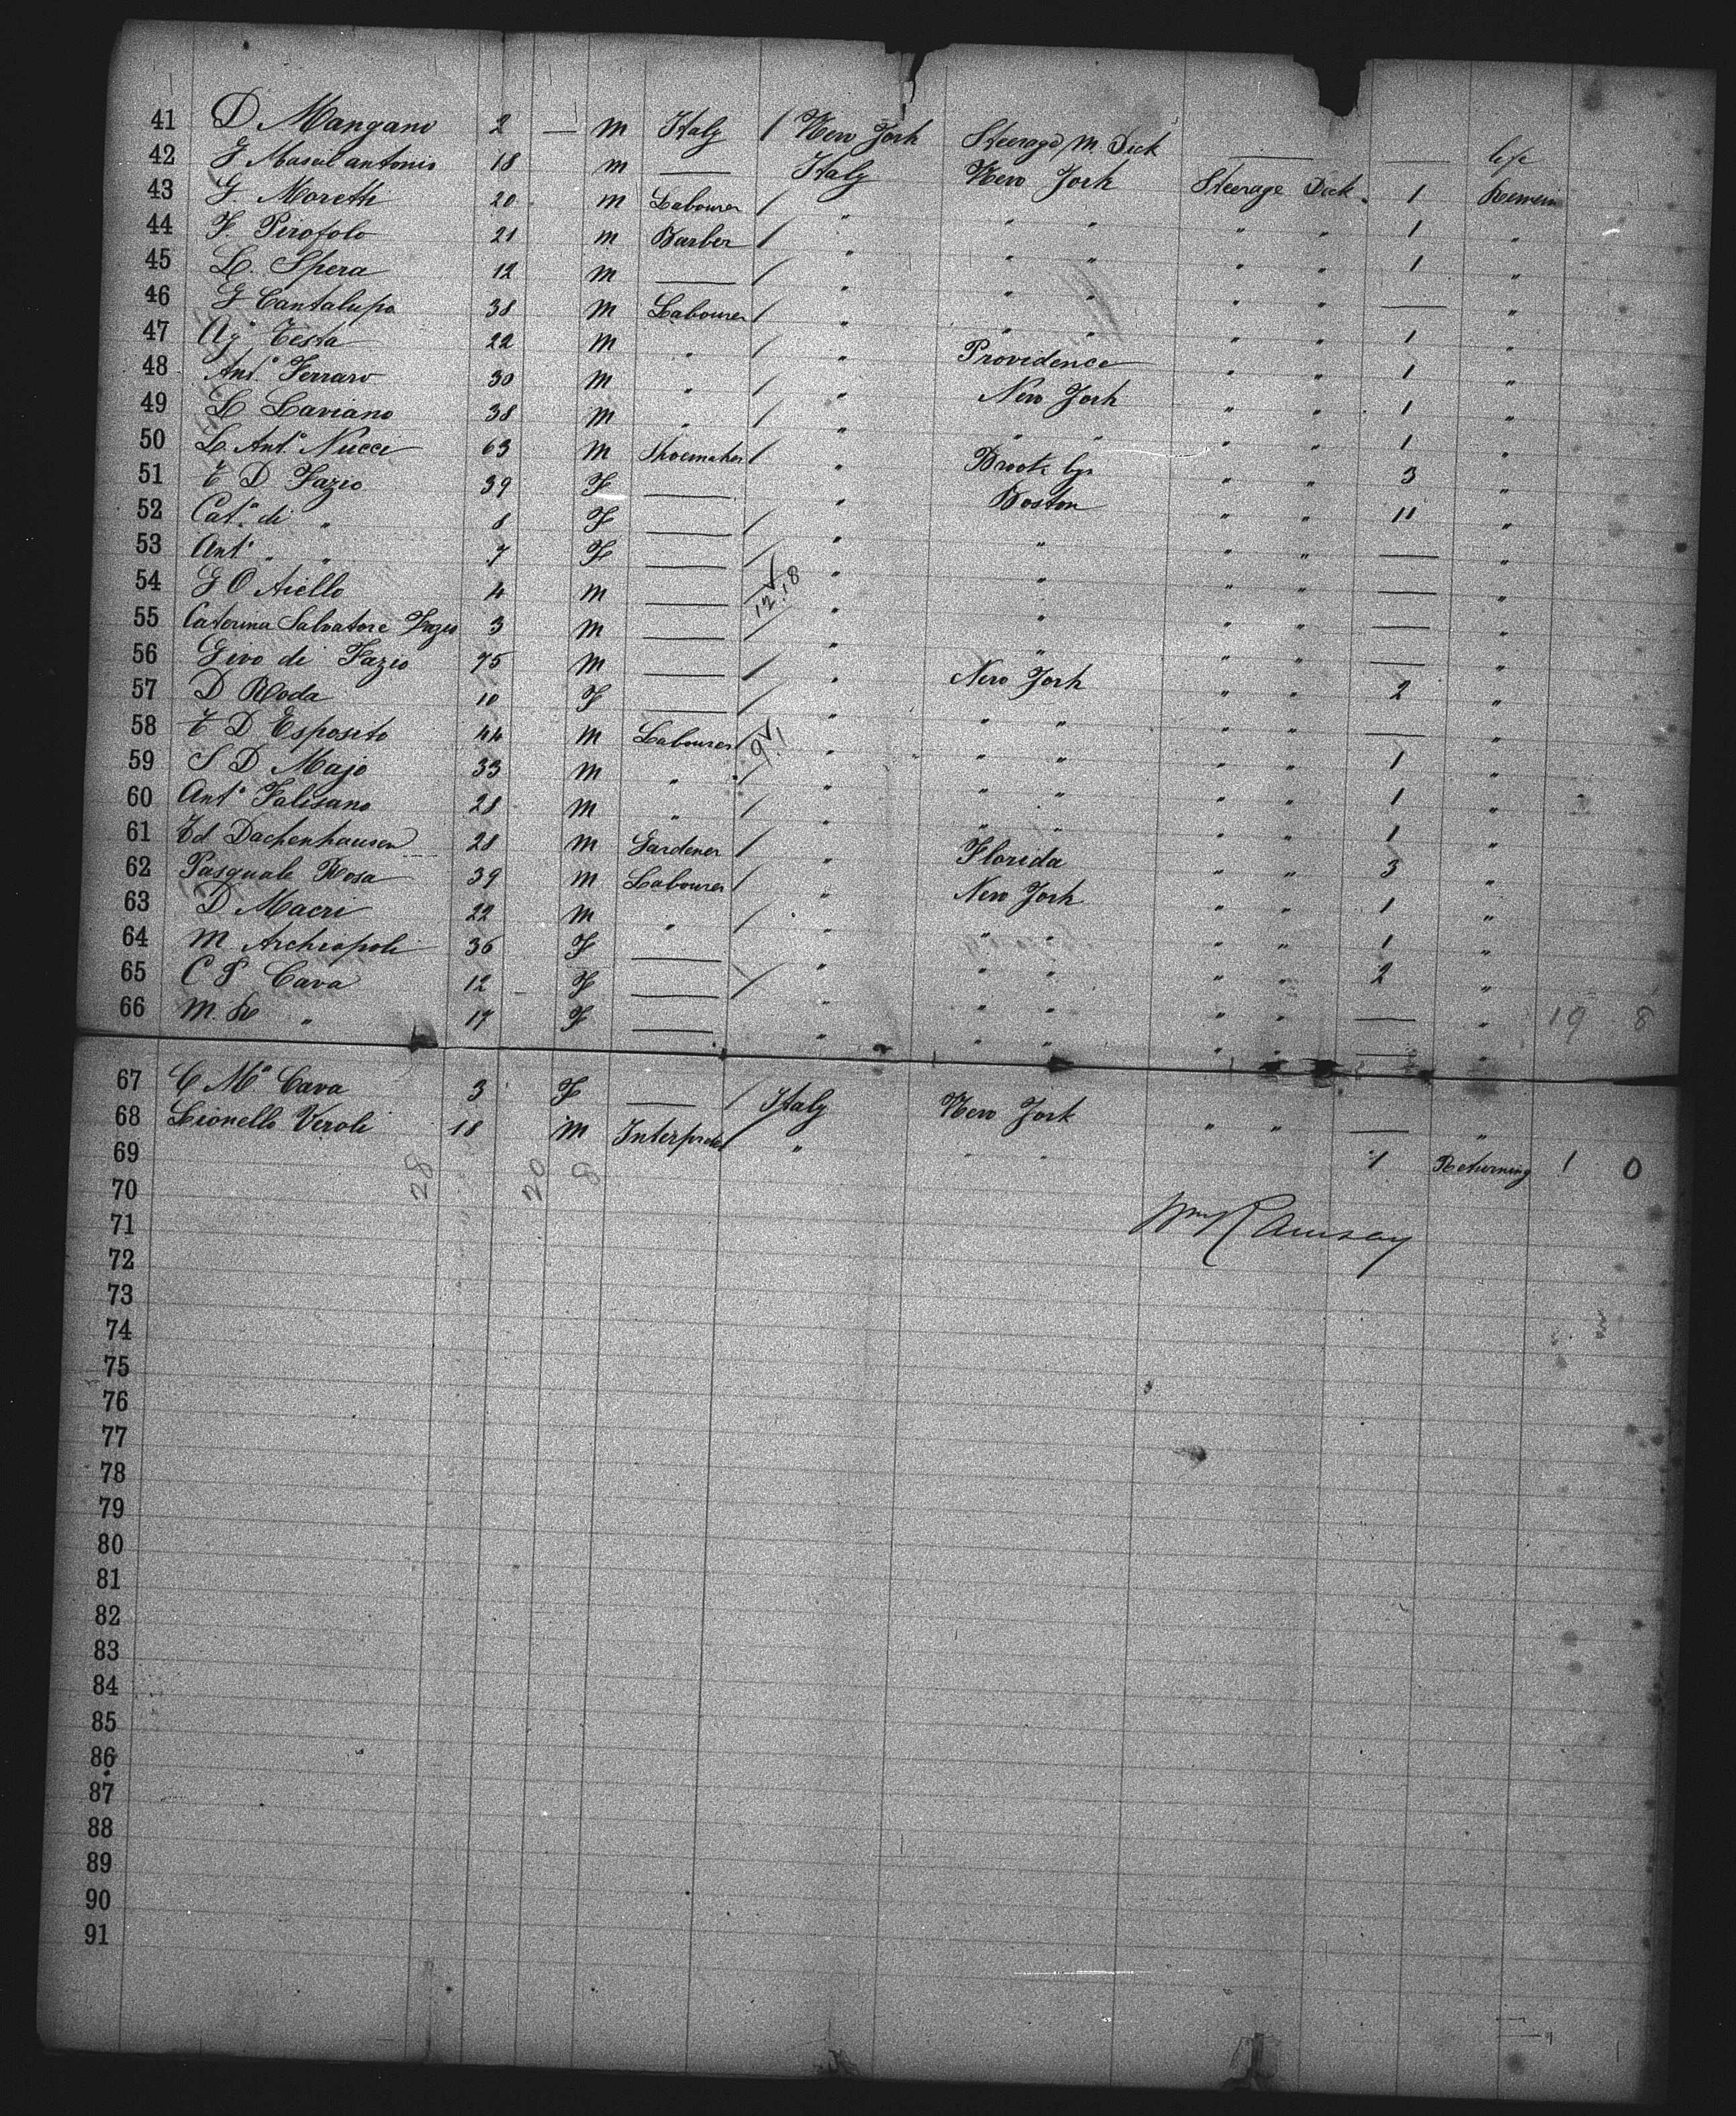 41 D Mangano 2 — M Italy / New York Steerage/M Deck — — life
42 G Mascel antonio 18 M — Italy New York Steerage Deck 1 Remain
43 G. Moretti 20 M Labourer / " " " " " 1 "
44 F. Pirofolo 21 M Barber / " " " " " 1 "
45 L. Spera 12 M — / " " " " " — "
46 G Cantalupo 38 M Labourer / " " " " " 1 "
47 Ag° Testa 22 M " / " Providence " " 1 "
48 Ant° Ferraro 30 M " / " New York " " 1 "
49 L Laviano 38 M " / " " " " " 1 "
50 L. Ant° Nucci 63 M Shoemaker / " Brook lyn " " 3 "
51 T D Fazio 39 F — " Boston " " 11 "
52 Cat° di " 8 F — / " " " " — "
53 Ant° " " 7 F — / " " " " — "
54 G O Aiello 4 M — / 12.18 " " " " — "
55 Caterina Salvatore Fazio 3 M — / " " " " — "
56 Givo di Fazio 75 M — / " New York " " 2 "
57 D Roda 10 F — / " " " " " — "
58 T D Esposito 44 M Labourer / 9.1 " " " " " 1 "
59 S D Majo 33 M " / " " " " " 1 "
60 Ant° Falisano 28 M " / " " " " " 1 "
61 Ed Dachenhausen 28 M Gardener / " Florida " " 3 "
62 Pasquale Rosa 39 M Labourer / " New York " " 1 "
63 D Macri 22 M " / " " " " " 1 "
64 M Archiapoli 36 F — " " " " " 2 "
65 C P Cava 12 F — / " " " " " — "
66 M. R " 17 F — " " " " " — " 19 8
67 C Mª Cava 3 F — / Italy New York " " — "
68 Lionello Veroli 18 M Interpreter / " " " 1 Returning 1 0
69
28 20 8
70
Wm Ramsay
71
72
73
74
75
76
77
78
79
80
81
82
83
84
85
86
87
88
89
90
91